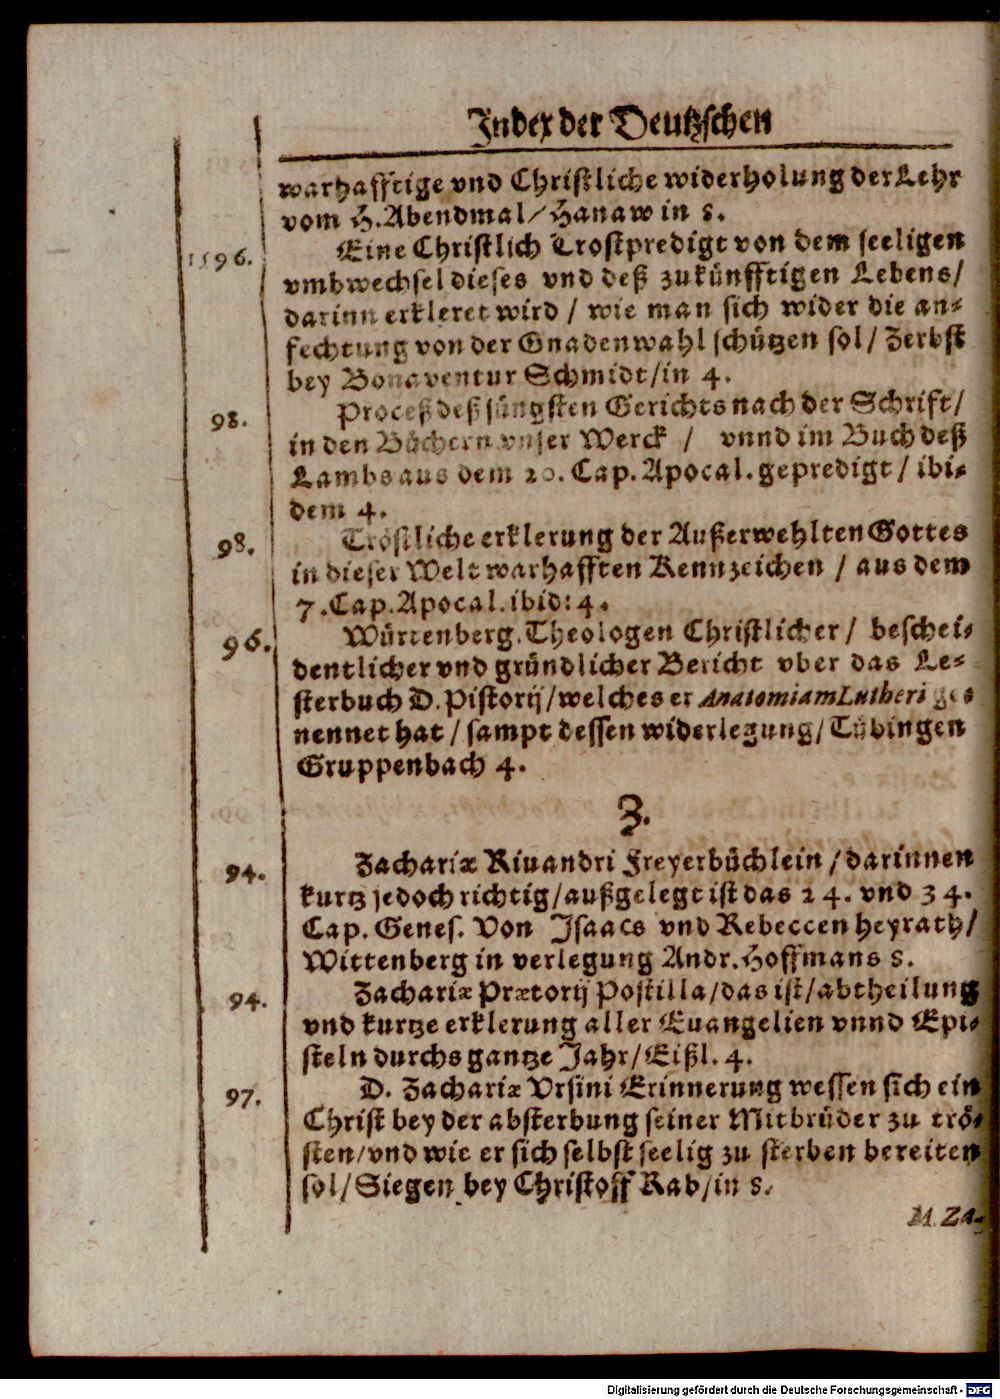 Index der Deutzschen
warhafftige vnd Christliche widerholung der Lehr
vom H. Abendmal/ Hanaw in 8.
1596. Eine Christlich Trostpredigt von dem seeligen
vmbwechsel dieses vnd deß zukünfftigen Lebens/
darinn erkleret wird / wie man sich wider die an-
fechtung von der Gnadenwahl schützen sol/ Zerbst
bey Bonaventur Schmidt/in 4.
98. Proceß deß jüngsten Gerichts nach der Schrifft/
in den Büchern vnser Werck / vnnd im Buch deß
Lambs aus dem 20. Cap. Apocal. gepredigt / ibi-
dem 4.
98. Tröstliche erklerung der Außerwehlten Gottes
in dieser Welt warhafften Kennzeichen / aus dem
7. Cap. Apocal. ibid: 4.
96. Würtenberg. Theologen Christlicher/ beschei-
dentlicher vnd gründlicher Bericht vber das Le-
sterbuch D. Pistorij/welches er Anatomiam Lutheri ge-
nennet hat / sampt dessen widerlegung/ Tübingen
Gruppenbach 4.
Z.
94. Zachariæ Riuandri Freyerbüchlein /darinnen
kurtz jedoch richtig/außgelegt ist das 24. vnd 34.
Cap. Genes. Von Isaacs vnd Rebeccen heyrath/
Wittenberg in verlegung Andr. Hoffmans 8.
94. Zachariæ Prætorij Postilla/das ist/abtheilung
vnd kurtze erklerung aller Euangelien vnnd Epi-
steln durchs gantze Jahr/Eißl. 4.
97. D. Zachariæ Vrsini Erinnerung wessen sich ein
Christ bey der absterbung seiner Mitbrüder zu trö-
sten/vnd wie er sich selbst seelig zu sterben bereiten
sol/Siegen bey Christoff Rab/in 8.
M. Za-
Digitalisierung gefördert durch die Deutsche Forschungsgemeinschaft - DFG